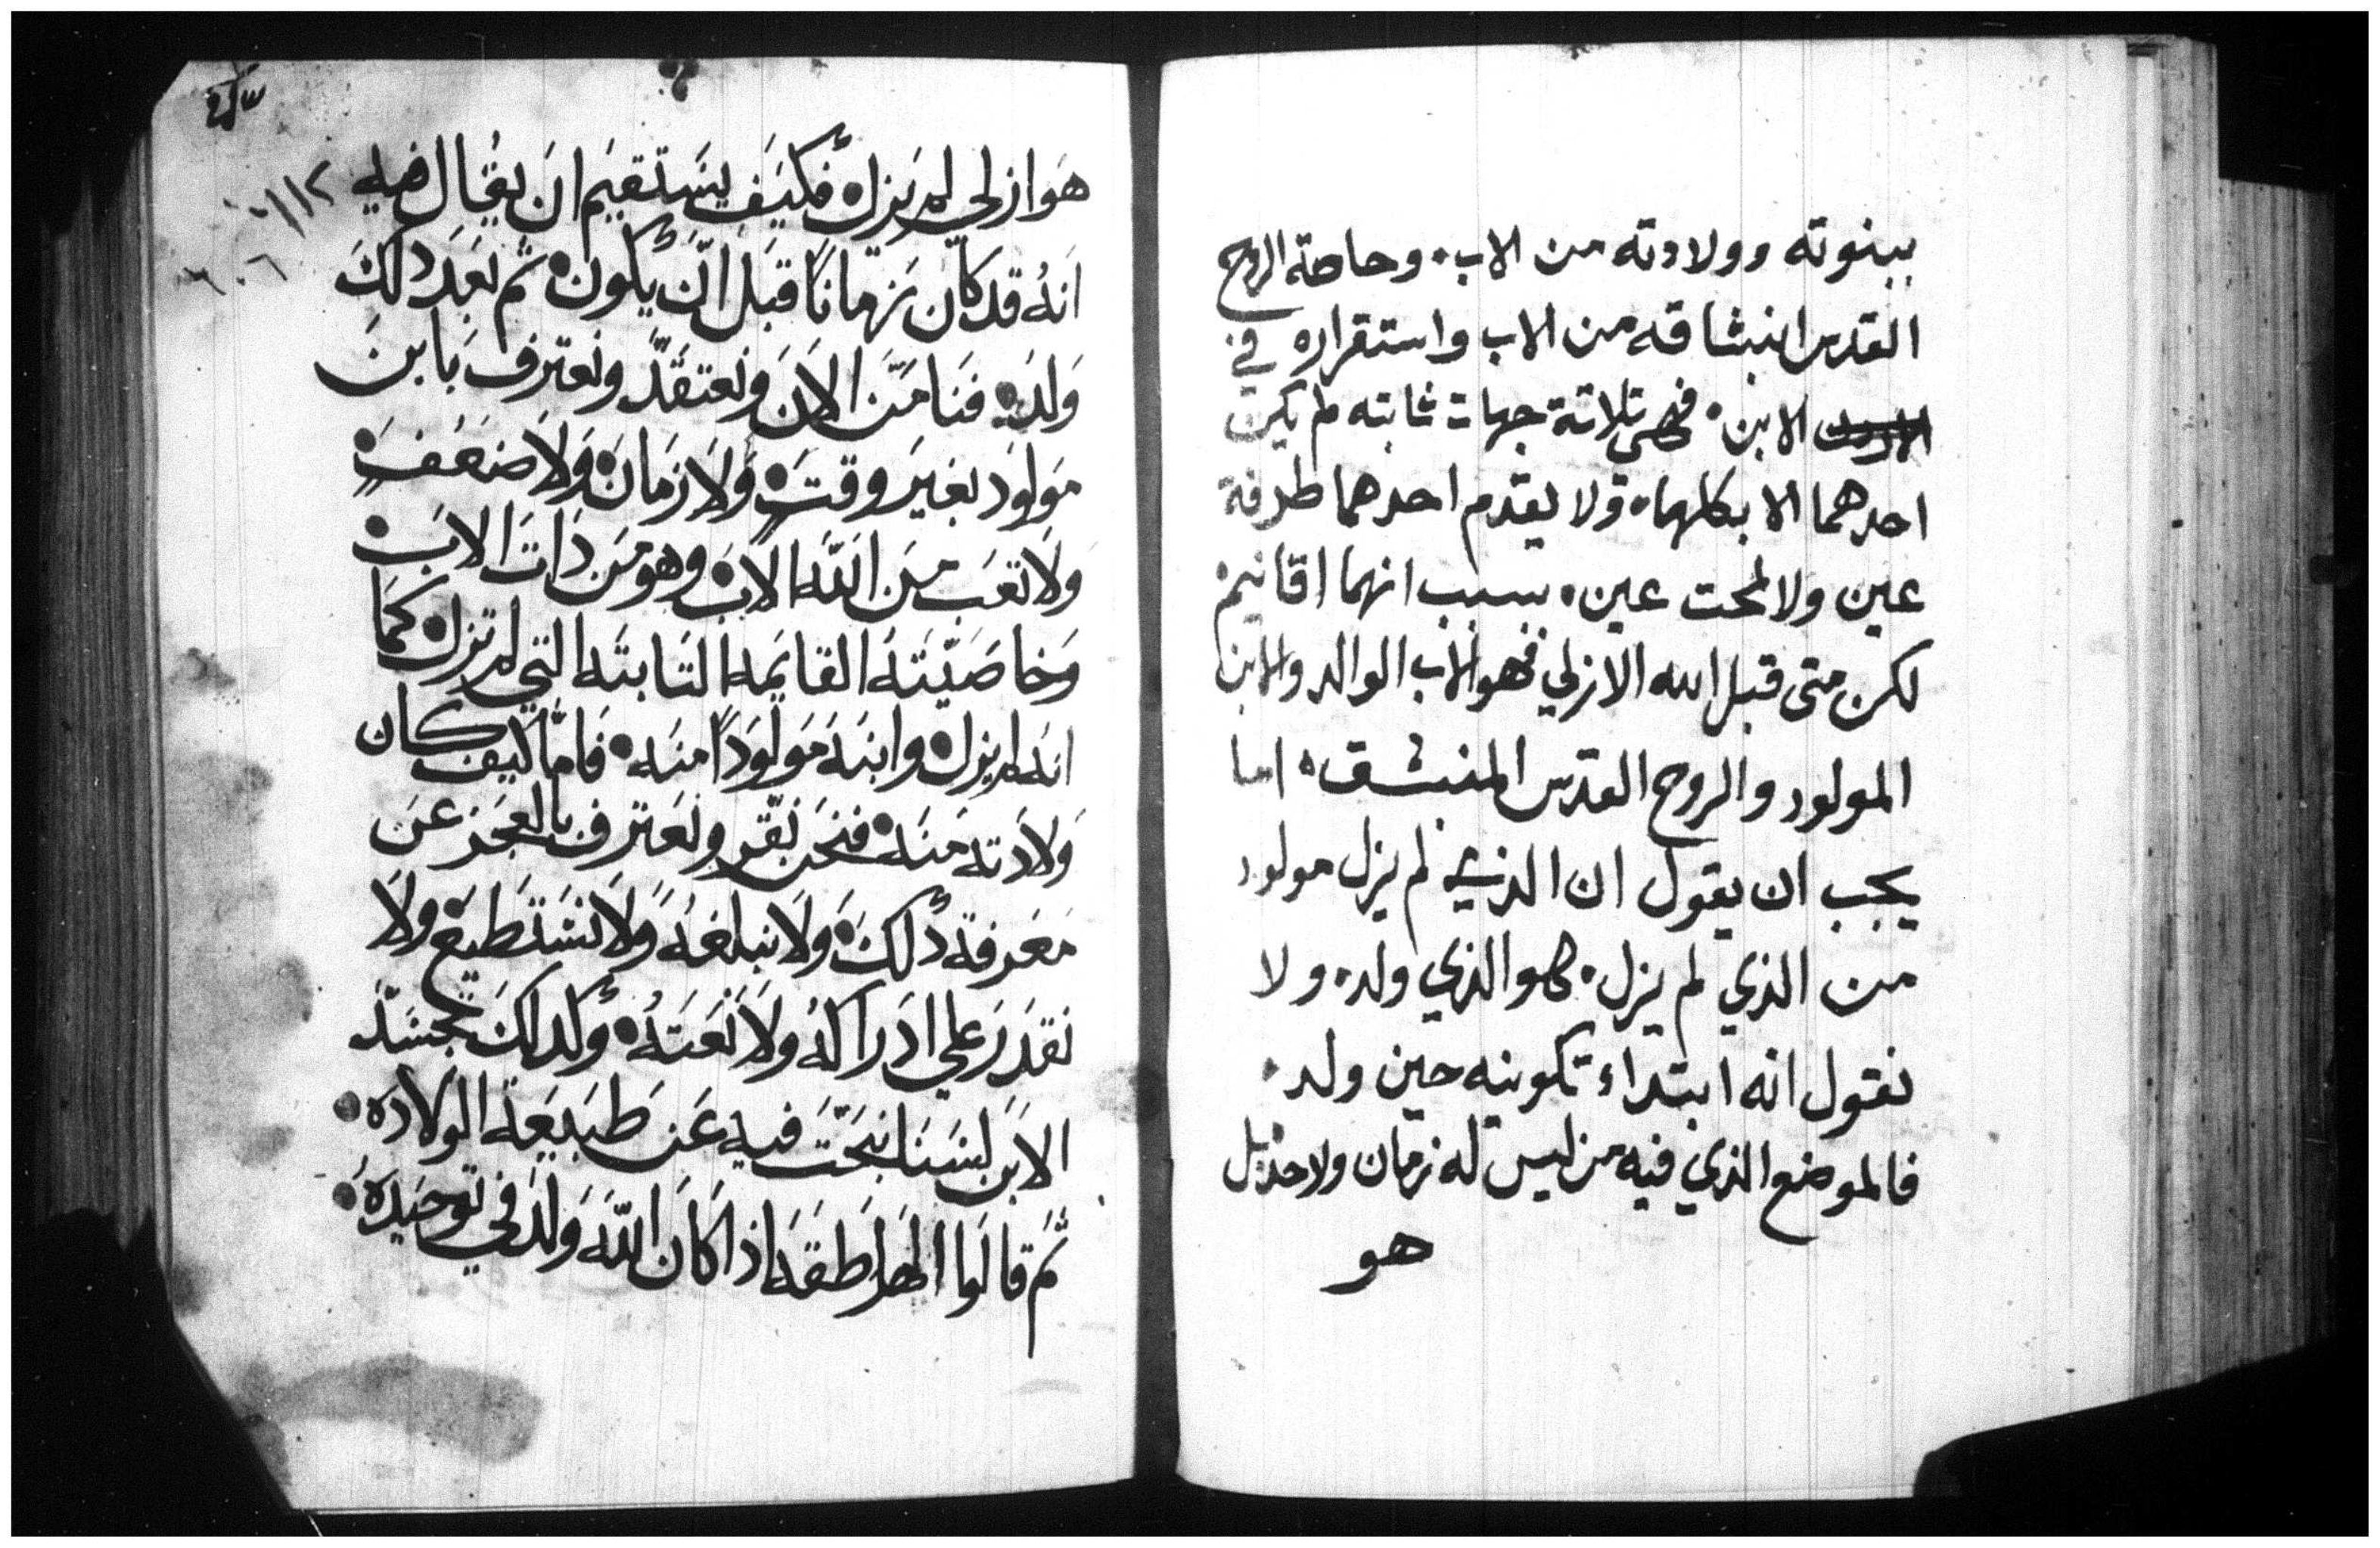 ببنوته وولادته من الاب. وحاصة الروح
القدس انبثاقه من الاب واستقراره في
الابن. فهى تلاتة جهات ثابته لم يكن
احدهما الا بكلهما. ولا يقدم احدهما طرفة
عين ولا لمحت عين. بسبب انهما اقانيم
لكن متى قبل الله الازلي فهو الاب الوالد والابن
المولود والروح القدس المنبثق. اما
يجب ان يقول ان الذي لم يزل مولود
من الذي لم يزل. كهو الذي ولد. ولا
نقول انه ابتداء تكوينه حين ولد.
فالموضع الذي فيه من ليس له زمان ولا حد بل
هو
هَوازلي لم يزل. فكيَف يسَتقيَم انَ يقُال فيه
انهُ قد كان زمانًا قبَل انّ يكون. تم بعَد دلكَ
وَلدَه. فنَامَنَ الانَ ونعتقدّ ونعترفَ بَابنَ
مَولودَ بغيرَ وقتَ. وَلا زمَانَ. وَلا ضعَفَ.
وَلا تعَب مِن اللّه الابَ. وهو مَن دَات الابَ.
وَخاصَيّتهُ القايَمه التَابتَه التي لم تزل. كمَا
انَه لم يزل. وابنَهَ مَولودًا منَه. فَامّا كيف كان
وَلادَته مَنهَ. فنحَن نقّر ونعَترف بالعَجَز عَن
مَعَرفة دلكَ. وَلا نبلغهُ وَلا نسَتَطيعَ ولا
نقدَرَ علي ادرَاكهُ ولا نعَتهُ. وكدلكَ تجسَدّ
الابَن لسَنَا نبحَت فيه عَن طبَيعَة الوَلادَه.
تمَ قالوَا الهرَاطقَه اذا كانَ اللّه وَلدَ في توحَيدَهُ.